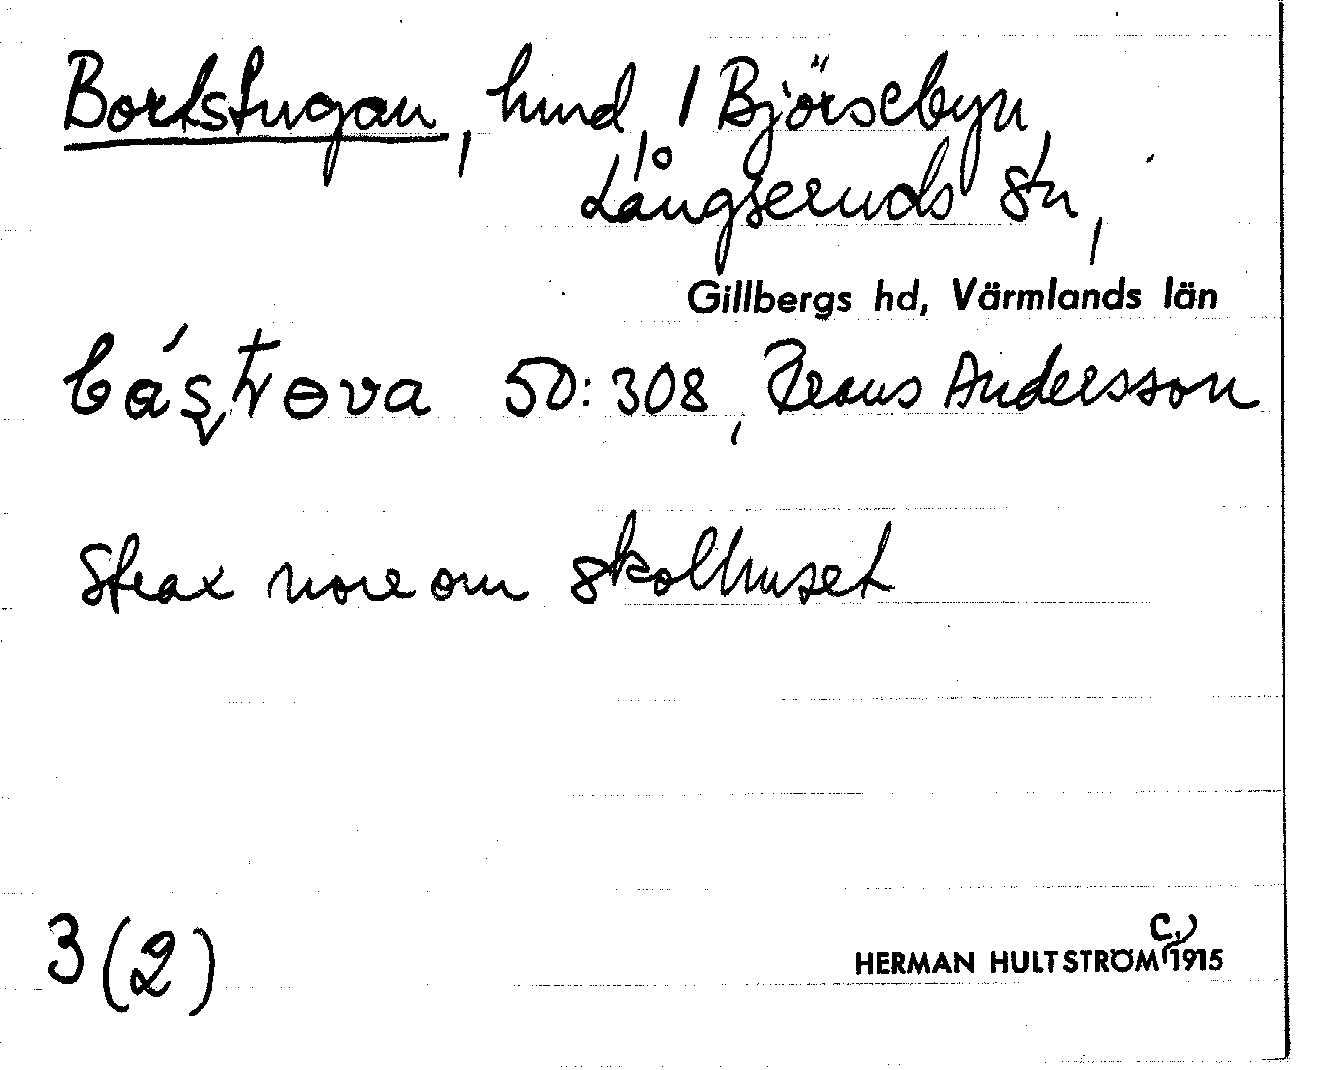 Bortstugan, hmd, / Björsebyn,
Långseruds sn,
Gillbergs hd, Värmlands län
50:308, Andersson
strax norr om skolhuset
3 (2)
c,
HERMAN HULTSTRÖM 1915